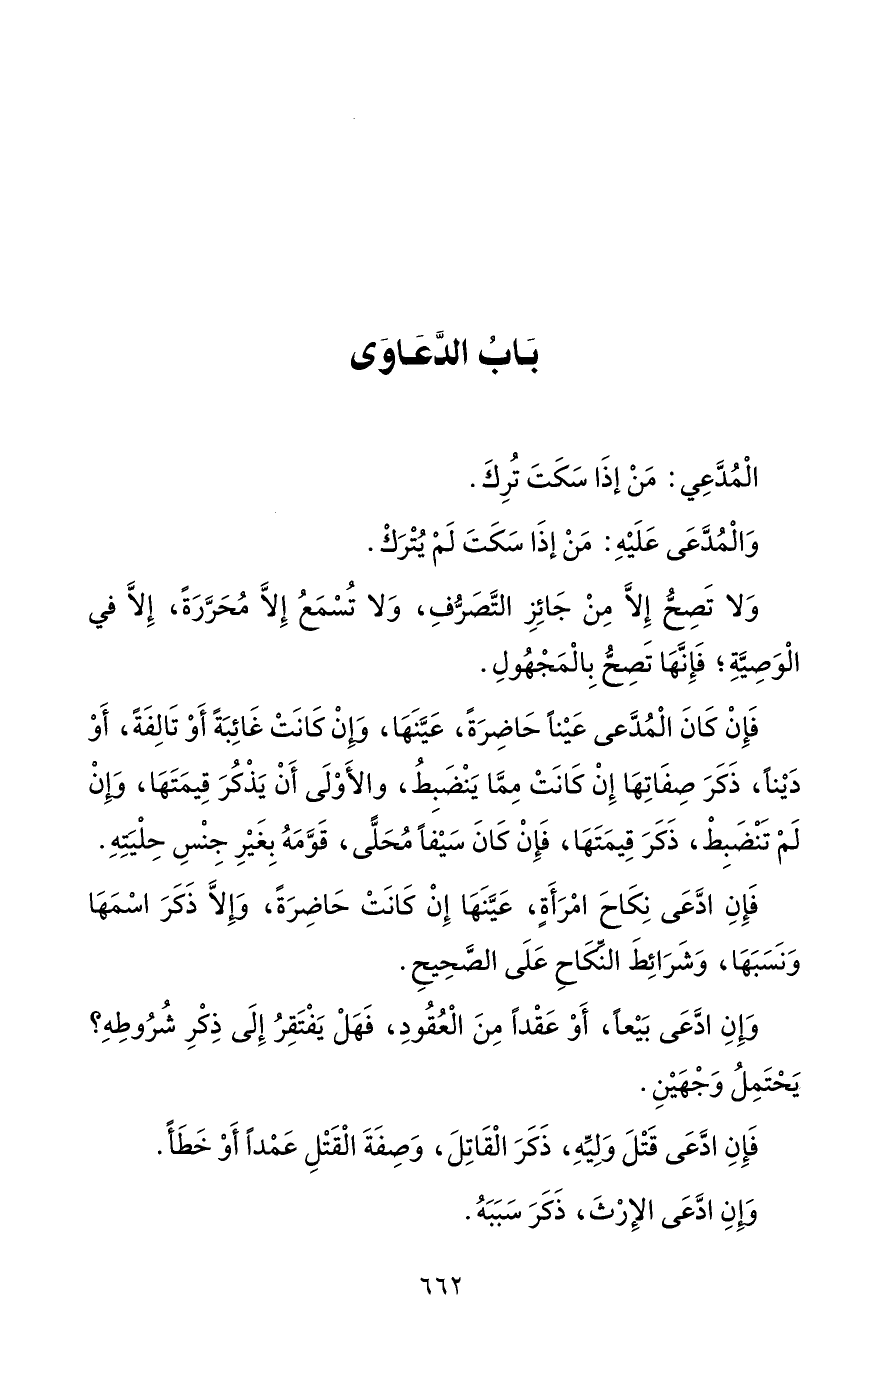 بَابُ الدَّعَاوَى
الْمُدَّعِي: مَنْ إِذَا سَكَتَ تُرِكَ.
وَالْمُدَّعَى عَلَيْهِ: مَنْ إِذَا سَكَتَ لَمْ يُتْرَكْ.
وَلا تَصِحُّ إِلاَّ مِنْ جَائِزِ التَّصَرُّفِ، وَلا تُسْمَعُ إِلاَّ مُحَرَّرَةً، إِلاَّ في
الْوَصِيَّةِ؛ فَإِنَّهَا تَصِحُّ بِالْمَجْهُولِ.
فَإِنْ كَانَ الْمُدَّعى عَيْناً حَاضِرَةً، عَيَّنَهَا، وَإِنْ كَانَتْ غَائِبَةً أَوْ تَالِفَةً، أَوْ
دَيْناً، ذَكَرَ صِفَاتِهَا إِنْ كَانَتْ مِمَّا يَنْضَبِطُ، والأَوْلَى أَنْ يَذْكُرَ قِيمَتَهَا، وَإِنْ
لَمْ تَنْضَبِطْ، ذَكَرَ قِيمَتَهَا، فَإِنْ كَانَ سَيْفاً مُحَلَّى، قَوَّمَهُ بِغَيْرِ جِنْسِ حِلْيَتِهِ.
فَإِنِ ادَّعَى نِكَاحَ امْرَأَةٍ، عَيَّنَهَا إِنْ كَانَتْ حَاضِرَةً، وَإِلاَّ ذَكَرَ اسْمَهَا
وَنَسَبَهَا، وَشَرَائِطَ النِّكَاحِ عَلَى الصَّحِيحِ.
وَإِنِ ادَّعَى بَيْعاً، أَوْ عَقْداً مِنَ الْعُقُودِ، فَهَلْ يَفْتَقِرُ إِلَى ذِكْرِ شُرُوطِهِ؟
يَحْتَمِلُ وَجْهَيْنِ.
فَإِنِ ادَّعَى قَتْلَ وَلِيِّهِ، ذَكَرَ الْقَاتِلَ، وَصِفَةَ الْقَتْلِ عَمْداً أَوْ خَطَأً.
وَإِنِ ادَّعَى الإِرْثَ، ذَكَرَ سَبَبَهُ.
٦٦٢